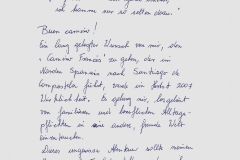 ich komme nur so selten dazu."
Buen camino!
Ein lang gehegter Wunsch von mir, den
"Camino Francés" zu gehen, der im
Norden Spaniens nach Santiago de
Compostela führt, wurde im Herbst 2007
Wirklichkeit. Es gelang mir, losgelöst
von familiären und beruflichen Alltags-
pflichten in eine andere, fremde Welt
einzutauchen.
Dieses ungewisse Abenteuer sollte meinen